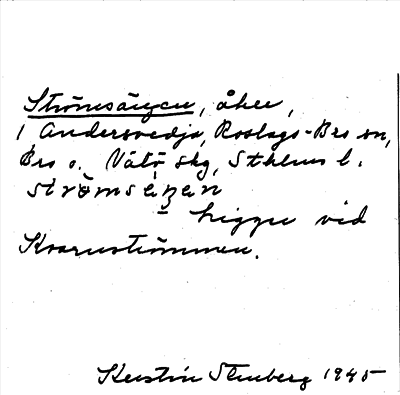 Strömsängen, åker,
i Andersvedja, Roslags-Bro sn,
Bro o. Vätö skg, Sthlms l.
strömsäŋen
– Ligger vid
Kvarnströmmen.
Kerstin Stenberg 1945